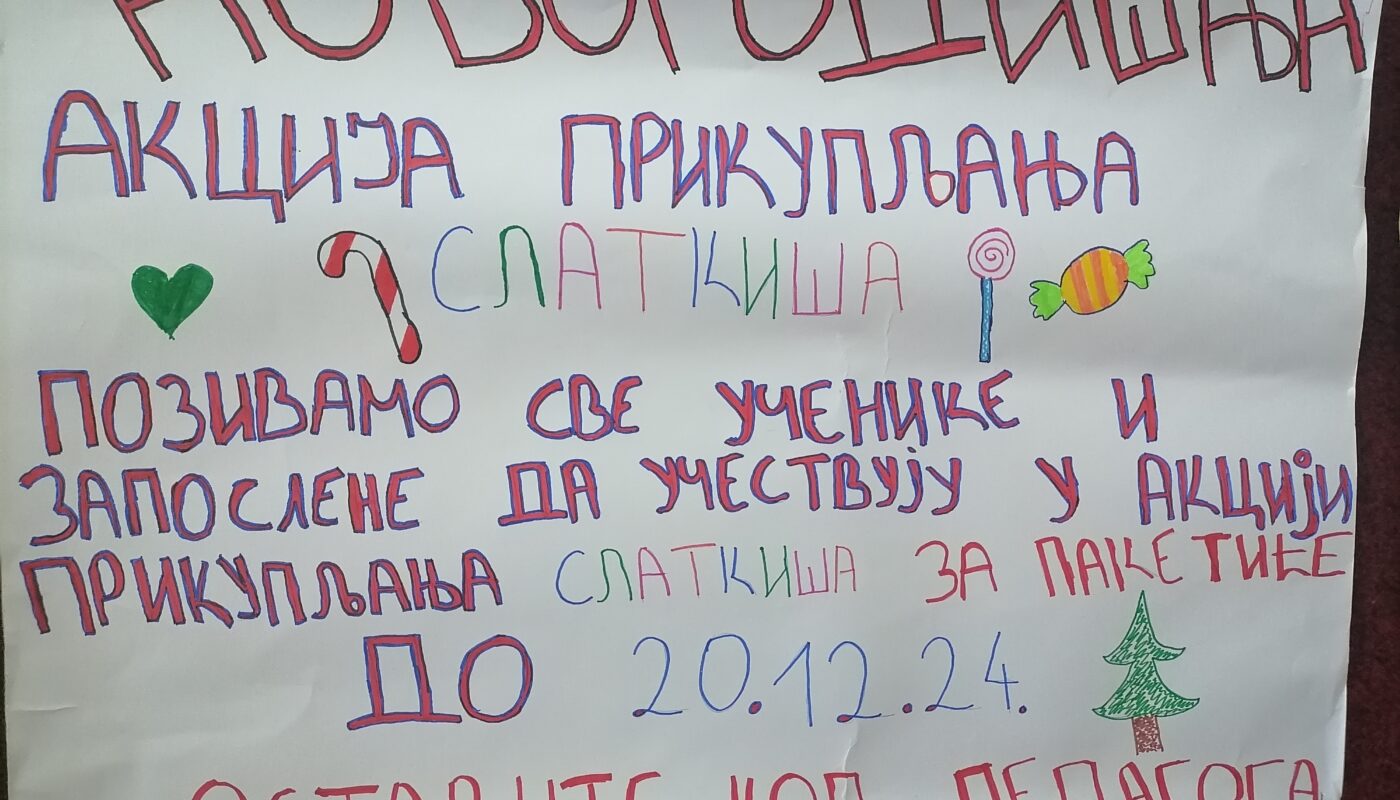 НОВОГОДИШЊА
АКЦИЈА ПРИКУПЉАЊА
СЛАТКИША
ПОЗИВАМО СВЕ УЧЕНИКЕ И
ЗАПОСЛЕНЕ ДА УЧЕСТВУЈУ У АКЦИЈИ
ПРИКУПЉАЊА СЛАТКИША ЗА ПАКЕТИЋЕ
ДО 20.12.24.
ОСТАВИТЕ КОД ПЕДАГОГА